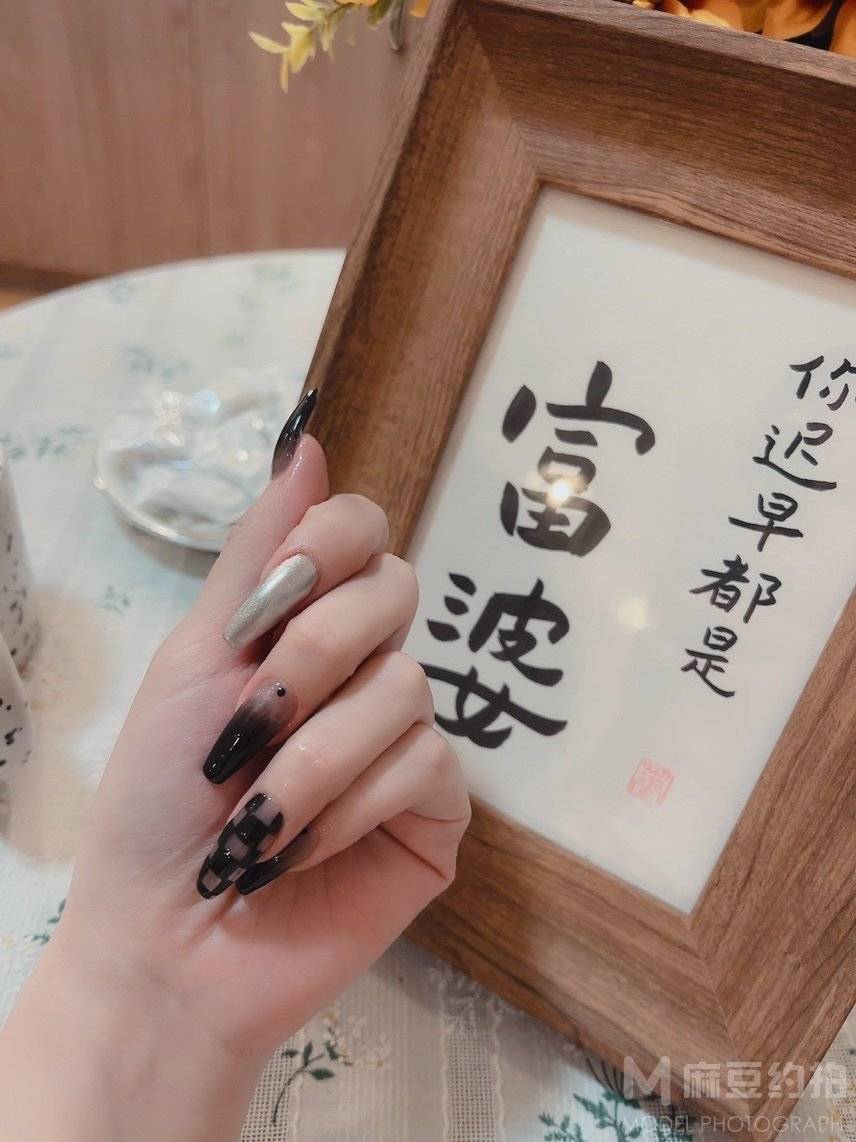 你迟早都是
富婆
M 麻豆约拍
MODEL PHOTOGRAPH